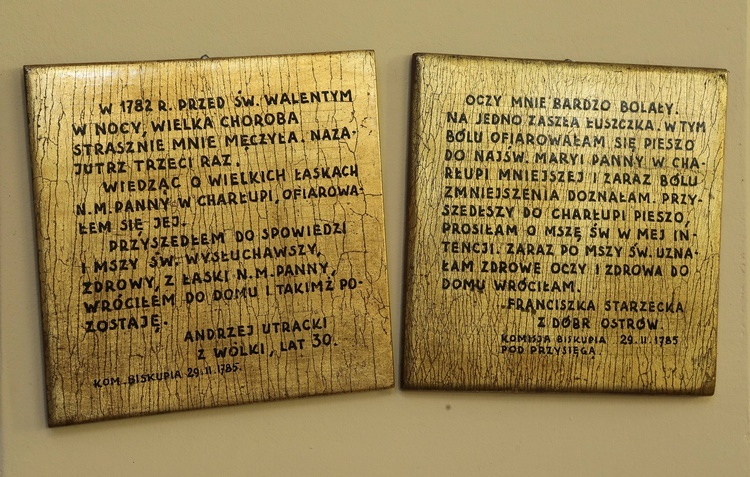 W 1782 R. PRZED ŚW. WALENTYM
W NOCY, WIELKA CHOROBA
STRASZNIE MNIE MĘCZYŁA. NAZA-
JUTRZ TRZECI RAZ.
WIEDZĄC O WIELKICH ŁASKACH
N.M. PANNY W CHARŁUPI, OFIAROWA-
ŁEM SIĘ JEJ.
PRZYSZEDŁEM DO SPOWIEDZI
I MSZY ŚW. WYSŁUCHAWSZY,
ZDROWY, Z ŁASKI N.M. PANNY,
WRÓCIŁEM DO DOMU I TAKIMŻ PO-
ZOSTAJĘ.
ANDRZEJ UTRACKI
Z WÓLKI, LAT 30.
KOM. BISKUPIA 29.II.1785.
OCZY MNIE BARDZO BOLAŁY.
NA JEDNO ZASZŁA ŁUSZCZKA. W TYM
BÓLU OFIAROWAŁAM SIĘ PIESZO
DO NAJŚW. MARYI PANNY W CHA-
RŁUPI MNIEJSZEJ I ZARAZ BÓLU
ZMNIEJSZENIA DOZNAŁAM. PRZY-
SZEDŁSZY DO CHARŁUPI PIESZO,
PROSIŁAM O MSZĘ ŚW W MEJ IN-
TENCJI. ZARAZ PO MSZY ŚW. UZNA-
ŁAM ZDROWE OCZY I ZDROWA DO
DOMU WRÓCIŁAM.
FRANCISZKA STARZECKA
Z DÓBR OSTRÓW.
KOMISJA BISKUPIA 29.II.1785
POD PRZYSIĘGĄ.